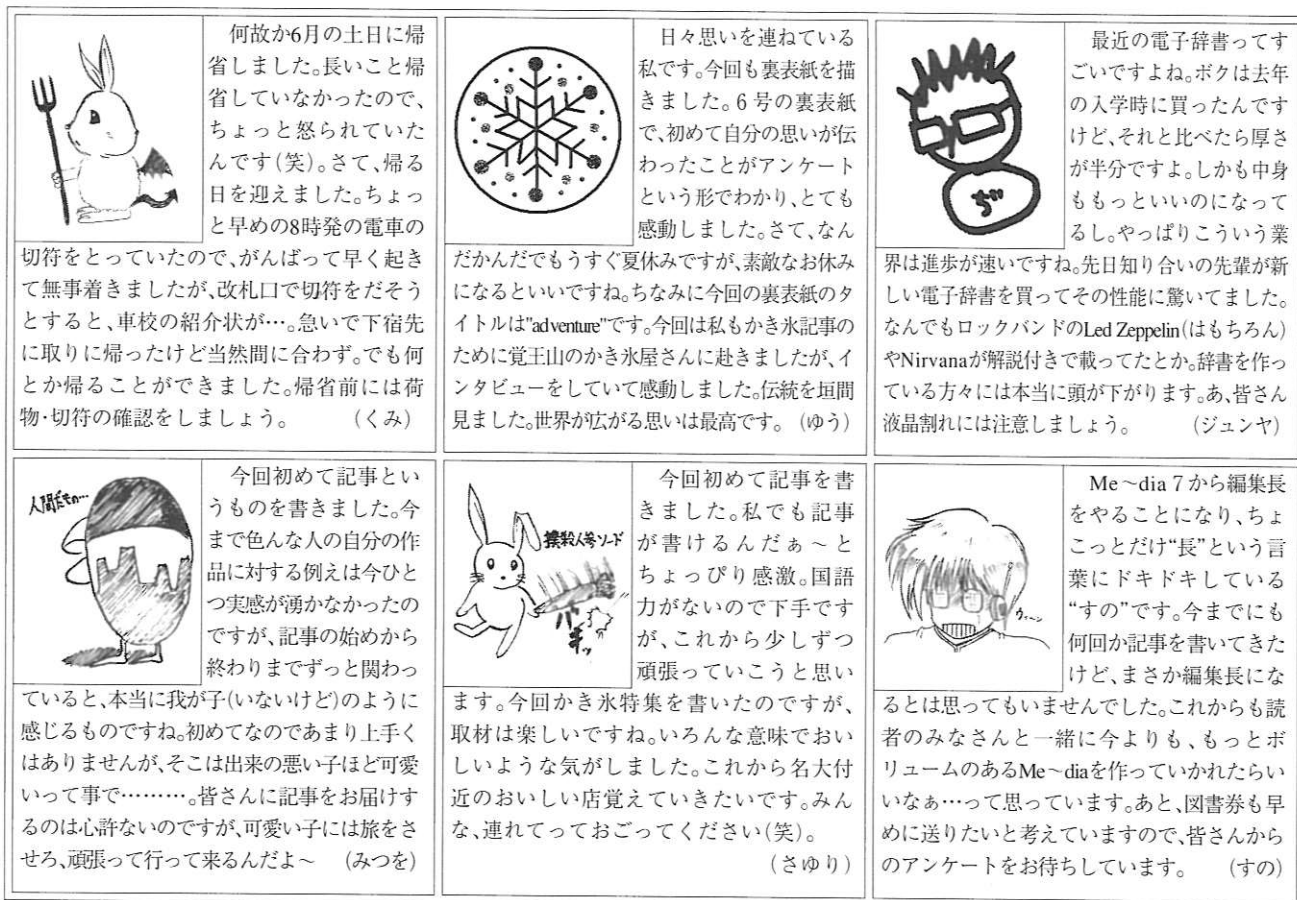 何故か6月の土日に帰
省しました。長いこと帰
省していなかったので、
ちょっと怒られていた
んです(笑)。さて、帰る
日を迎えました。ちょっ
と早めの8時発の電車の
切符をとっていたので、がんばって早く起き
て無事着きましたが、改札口で切符をだそう
とすると、車校の紹介状が…。急いで下宿先
に取りに帰ったけど当然間に合わず。でも何
とか帰ることができました。帰省前には荷
物・切符の確認をしましょう。 (くみ)
日々思いを連ねている
私です。今回も裏表紙を描
きました。6号の裏表紙
で、初めて自分の思いが伝
わったことがアンケート
という形でわかり、とても
感動しました。さて、なん
だかんだでもうすぐ夏休みですが、素敵なお休み
になるといいですね。ちなみに今回の裏表紙のタ
イトルは"adventure"です。今回は私もかき氷記事の
ために覚王山のかき氷屋さんに赴きましたが、イ
ンタビューをしていて感動しました。伝統を垣間
見ました。世界が広がる思いは最高です。 (ゆう)
ぢ
最近の電子辞書ってす
ごいですよね。ボクは去年
の入学時に買ったんです
けど、それと比べたら厚さ
が半分ですよ。しかも中身
ももっといいのになって
るし。やっぱりこういう業
界は進歩が速いですね。先日知り合いの先輩が新
しい電子辞書を買ってその性能に驚いてました。
なんでもロックバンドのLed Zeppelin(はもちろん)
やNirvanaが解説付きで載ってたとか。辞書を作っ
ている方々には本当に頭が下がります。あ、皆さん
液晶割れには注意しましょう。 (ジュンヤ)
人間だもの…
今回初めて記事とい
うものを書きました。今
まで色んな人の自分の作
品に対する例えは今ひと
つ実感が湧かなかったの
ですが、記事の始めから
終わりまでずっと関わっ
ていると、本当に我が子(いないけど)のように
感じるものですね。初めてなのであまり上手く
はありませんが、そこは出来の悪い子ほど可愛
いって事で………。皆さんに記事をお届けす
るのは心許ないのですが、可愛い子には旅をさ
せろ、頑張って行って来るんだよ～ (みつを)
撲殺人参ソード
バキッ
今回初めて記事を書
きました。私でも記事
が書けるんだぁ～と
ちょっぴり感激。国語
力がないので下手です
が、これから少しずつ
頑張っていこうと思い
ます。今回かき氷特集を書いたのですが、
取材は楽しいですね。いろんな意味でおい
しいような気がしました。これから名大付
近のおいしい店覚えていきたいです。みん
な、連れてっておごってください(笑)。
(さゆり)
ウィーン
Me～dia 7 から編集長
をやることになり、ちょ
こっとだけ“長”という言
葉にドキドキしている
“すの”です。今までにも
何回か記事を書いてきた
けど、まさか編集長にな
るとは思ってもいませんでした。これからも読
者のみなさんと一緒に今よりも、もっとボ
リュームのあるMe～diaを作っていかれたらい
いなぁ…って思っています。あと、図書券も早
めに送りたいと考えていますので、皆さんから
のアンケートをお待ちしています。 (すの)